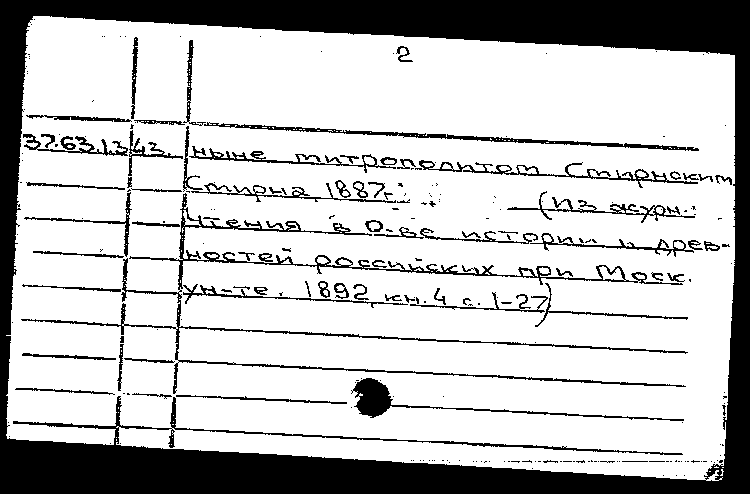 2
37.63.1.343. ныне митрополитом Смирнским
Смирна, 1887г. (Из журн.:
Чтения в О-ве истории и древ-
ностей российских при Моск.
ун-те. 1892, кн. 4 с. 1-27)